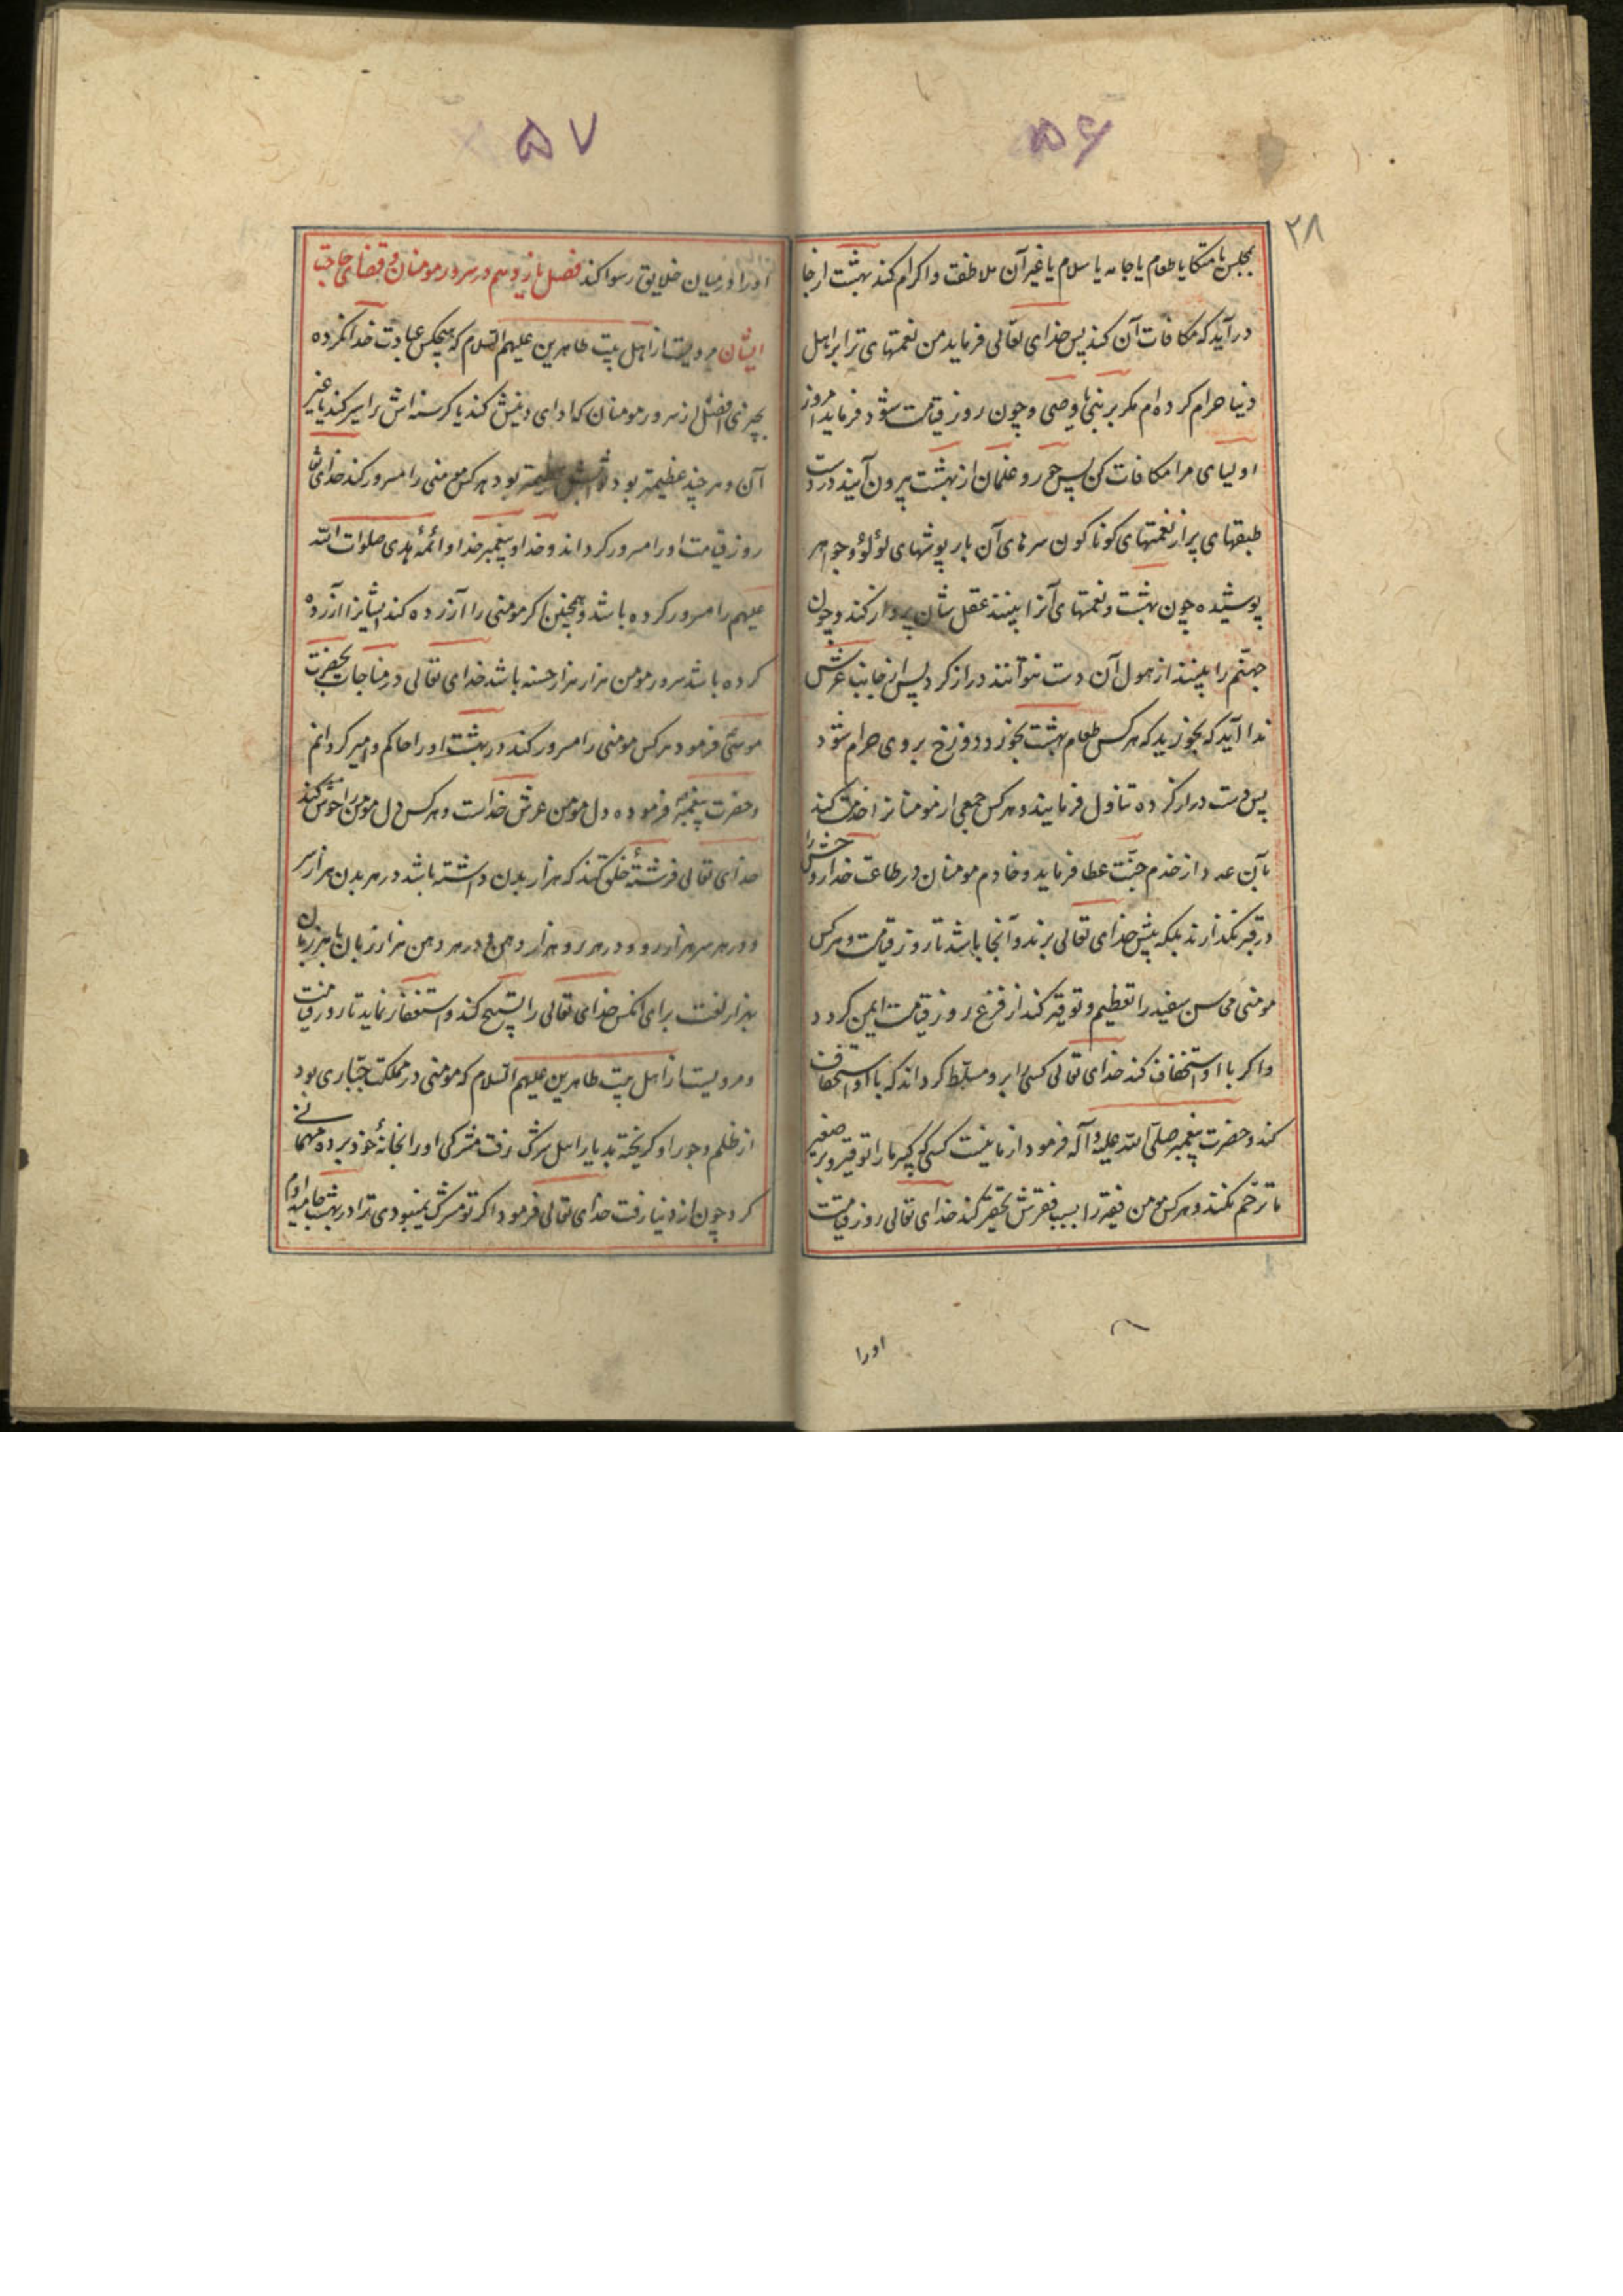 ۵۶
۲۸
بمجلس یا متکا یا طعام یا جامه یا سلام یا غیر آن ملاطفت و اکرام کند بهشت از جا
درآید که مکافات آن کند پس خدای تعالی فرماید من نعمتهای ترا بر اهل
دنیا حرام کرده‌ام مکر بر نبی یا وصی و چون روز قیامت شود فرماید امروز
اولیای مرا مکافات کن پس حور و غلمان از بهشت بیرون آیند در دست
طبقهای پر از نعمتهای کوناکون سرهای آن بارپوشهای لؤلؤ و جواهر
پوشیده چون بهشت و نعمتهای آنرا بینند عقل شان پرواز کند و چون
جهنّم را بینند از هول آن دست نتوانند دراز کرد پس از جانب عرش
ندا آید که بخورید که هر کس طعام بهشت بخورد دوزخ بر وی حرام شود
پس دست دراز کرده تناول فرمایند و هر کس جمعی از مومنانرا خدمت کند
بآن عدد از خدم جنّت عطا فرماید و خادم مومنان در طاعت خدا روحش را
در قبر نکذارند بلکه پیش خدای تعالی برند و آنجا باشد تا روز قیامت و هر کس
مومنی محاسن سفید را تعظیم و توقیر کند از فزع روز قیامت ایمن کردد
و اکر با او استخفاف کند خدای تعالی کسی را برو مسلّط کرداند که با او استخفاف
کند و حضرت پیغمبر صلّی الله علیه و آله فرمود از ما نیست کسی که کبیر ما را توقیر و بر صغیر
ما ترحّم نکند و هر کس مومن فقیر را بسبب فقرش تحقیر کند خدای تعالی روز قیامت
اورا
۵۷
اورا در میان خلایق رسوا کند فصل یازدهم در سرور مومنان و قضای حاجت
ایشان مرویست از اهل بیت طاهرین علیهم السّلام که هیچکس عبادت خدا نکرده
بچیزی افضل از سرور مومنان که ادای دینش کند یا کرسنه‌اش را سیر کند یا غیر
آن و هر چند عظیمتر بود هر کس مومنی را مسرور کند خدای تعالی
روز قیامت اورا مسرور کرداند و خدا و پیغمبر خدا و ائمّهٔ هدی صلوات الله
علیهم را مسرور کرده باشد و همچنین اکر مومنی را آزرده کند ایشانرا آزرده
کرده باشد سرور مومن هزار هزار حسنه باشد خدای تعالی در مناجات بحضرت
موسی فرمود هر کس مومنی را مسرور کند در بهشت اورا حاکم و امیر کردانم
و حضرت پیغمبر فرموده دل مومن عرش خداست و هر کس دل مومن را خوش کند
خدای تعالی فرشتهٔ خلق کند که هزار بدن داشته باشد در هر بدن هزار سر
و در هر سر هزار رو و در هر رو هزار دهن و در هر دهن هزار زبان تا بهر زبان
بهزار لغت برای آنکس خدای تعالی را تسبیح کند و استغفار نماید تا روز قیامت
و مرویست از اهل بیت طاهرین علیهم السّلام که مومنی در مملکت جبّاری بود
از ظلم و جور او کریخته بدیار اهل شرک رفت مشرکی اورا بخانهٔ خود برده مهمانی
کرد چون از دنیا رفت خدای تعالی فرمود اکر تو مشرک نمیبودی ترا در بهشت جا میدادم